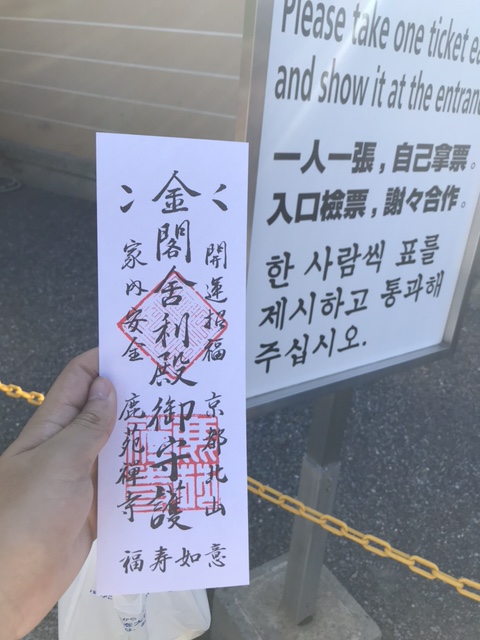 Please take one ticket ea
and show it at the entran
一人一張，自己拿票。
入口檢票，謝々合作。
한 사람씩 표를
제시하고 통과해
주십시오.
開運招福 京都北山
金閣舎利殿御守護
家内安全 鹿苑禅寺
福寿如意